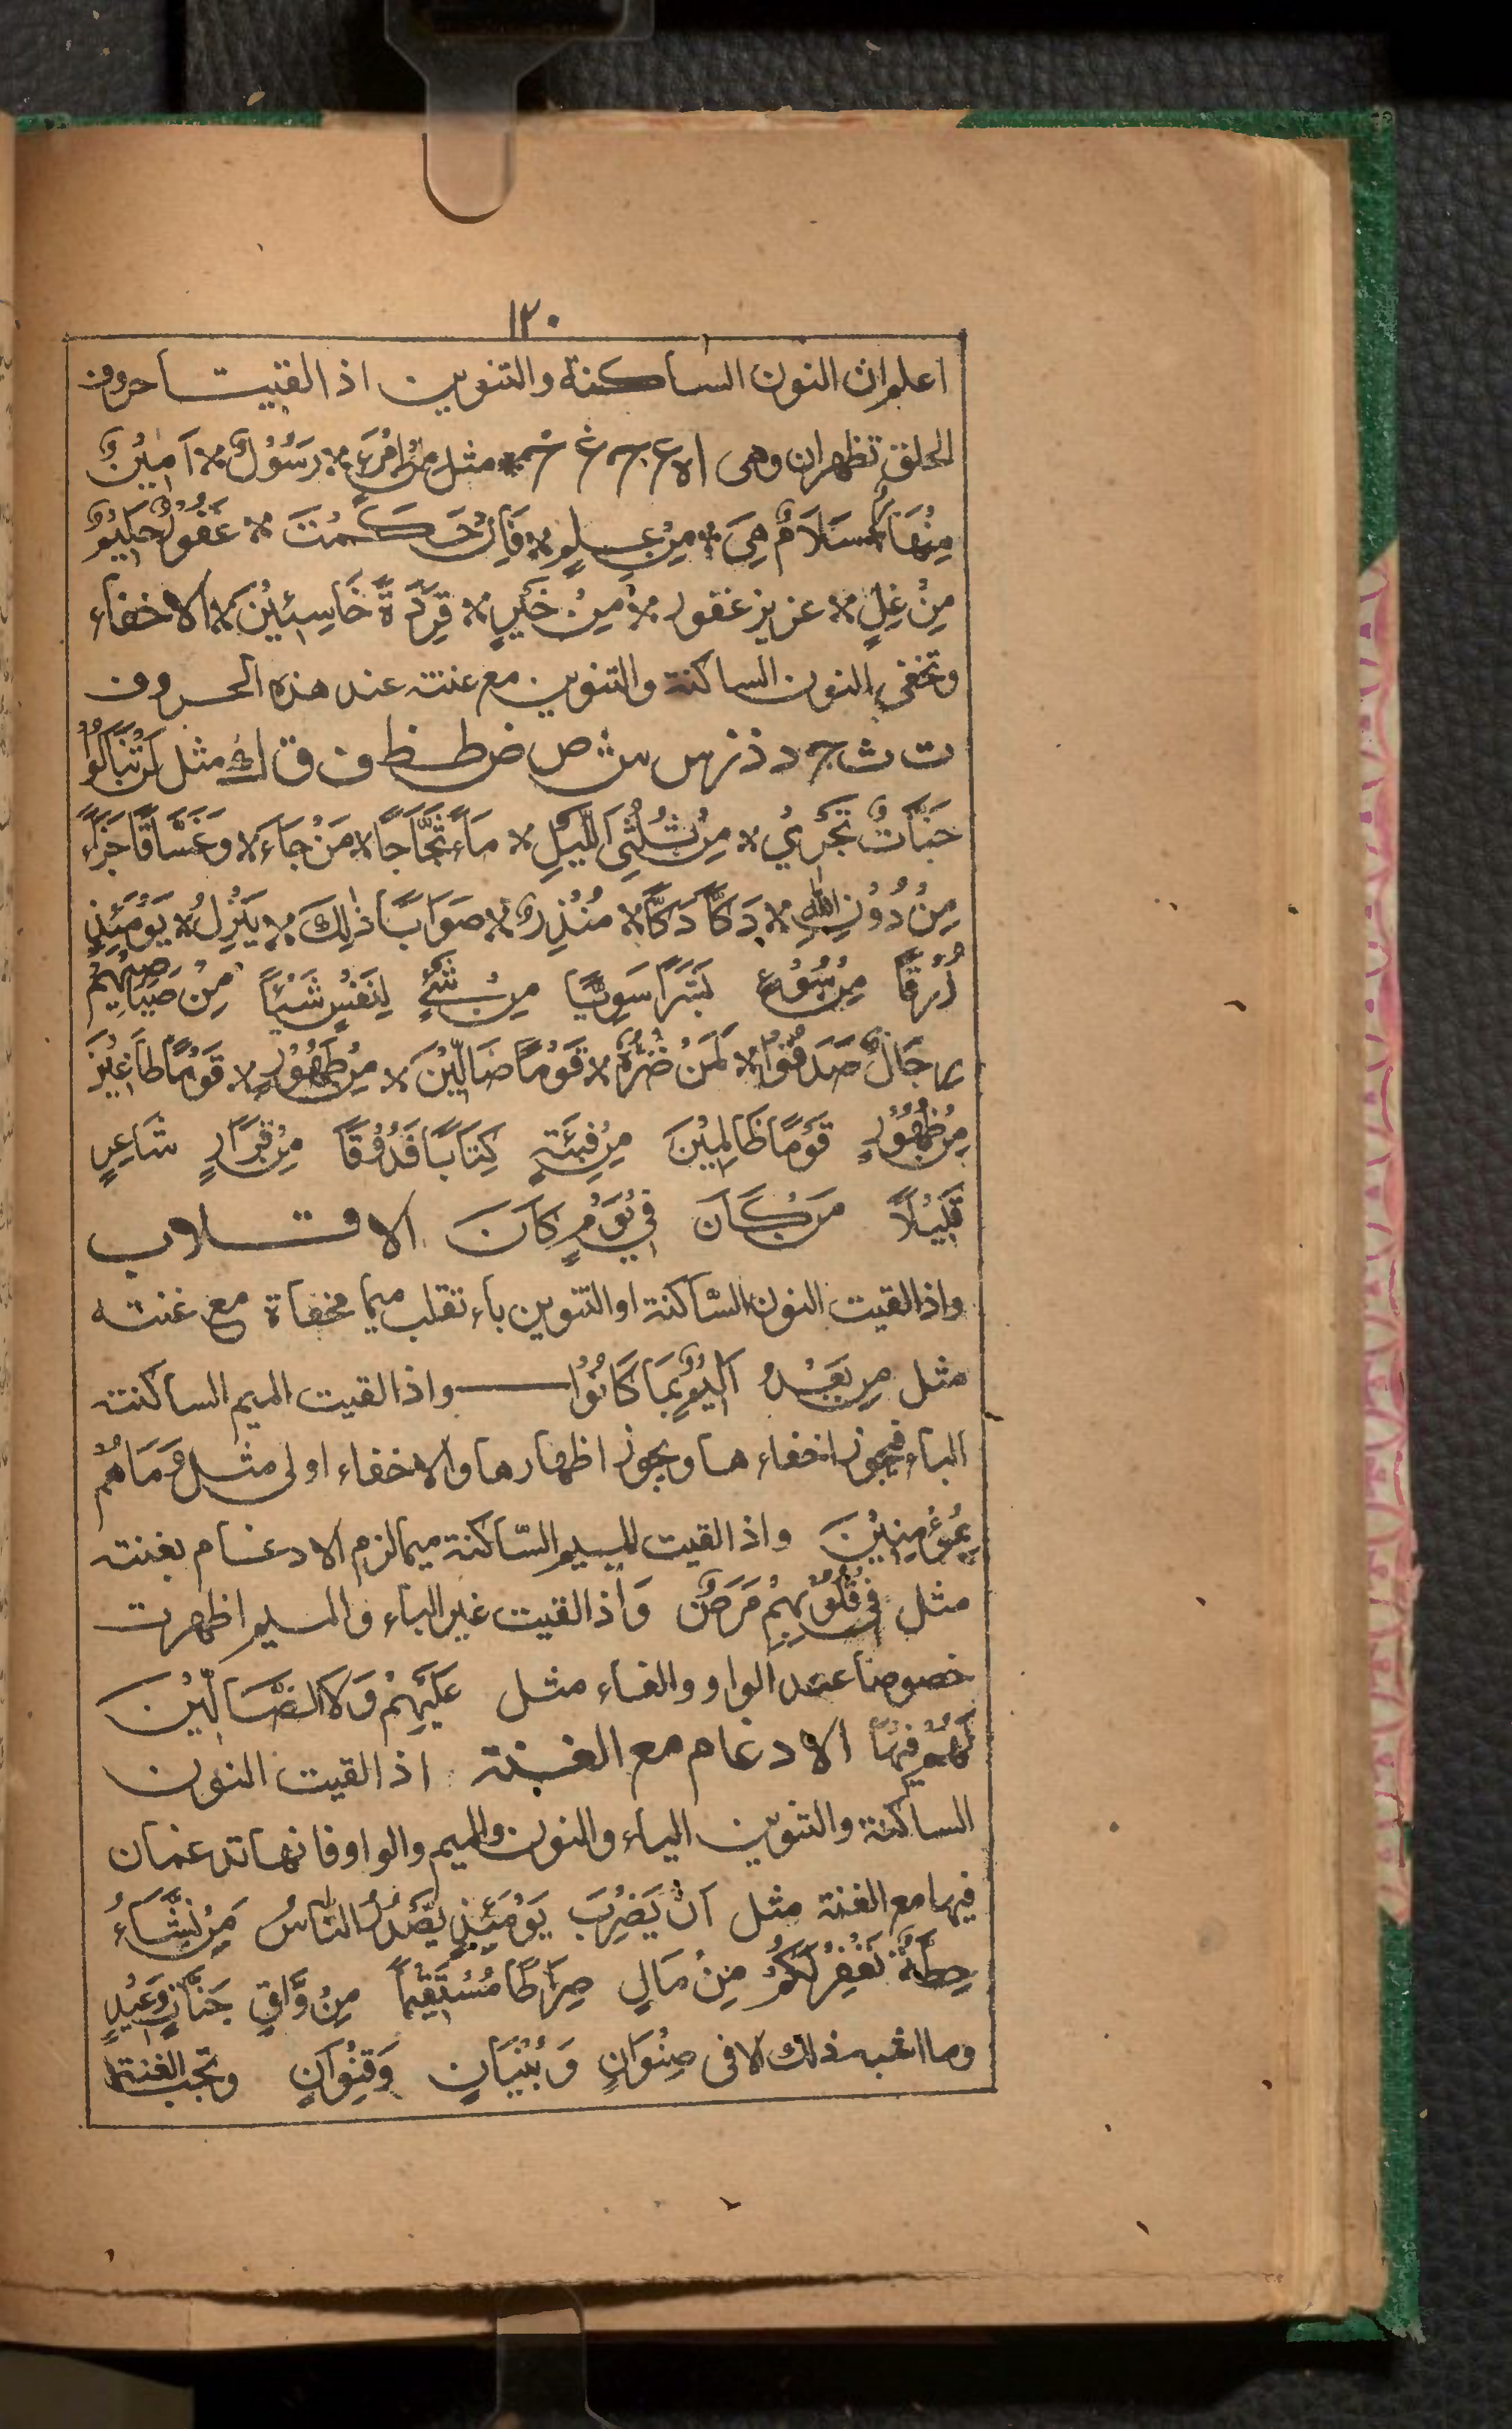 ١٢٠
اعلم ان النون الساكنة والتنوين اذا لقيت احروف
الحلق تظهران وهى ا ه ع ح غ خ مثل مِنْ رَسُوْلٌ اَمِيْنٌ
مِنْهَا سَلَامٌ هِىَ مِنْ عِلْمٍ فَاِنْ حَكَمْتَ غَفُوْرٌ حَلِيْمٌ
مِنْ غِلٍّ عزيز غفور مِنْ خَيْرٍ قِرَدَةً خَاسِئِيْنَ الاخفاء
وتخفى النون الساكنة والتنوين مع غنته عند هذه الحروف
ت ث ج د ذ ز س ش ص ض ط ظ ف ق ك مثل لَنْ تَنَالُوْا
جَنَّاتٌ تَجْرِيْ مِنْ ثُلُثَىِ الَّيْلِ مَاءً ثَجَّاجًا مَنْ جَاءَ وَغَسَّاقًا جَزَاءً
مِنْ دُوْنِ اللهِ دَكًّا دَكًّا مُنْذِرٌ صَوَابًا ذٰلِكَ يَنْزِلُ يَوْمَئِذٍ
زُرْقًا مِنْ سُوْءٍ بَشَرًا سَوِيًّا مِنْ شَىْءٍ لِنَفْسٍ شَيْئًا مِنْ صَيَاصِيْهِمْ
رِجَالٌ صَدَقُوْا لَمَنْ ضَرُّهٗ قَوْمًا ضَالِّيْنَ مِنْ طَهُوْرٍ قَوْمًا طَاغِيْنَ
مِنْ ظُهُوْرٍ قَوْمًا ظَالِمِيْنَ مِنْ فِئَتٍ كِتَابًا فَذُوْقًا مِنْ قَرَارٍ شَاعِرٍ
قَلِيْلًا مَنْ كَانَ فِيْ يَوْمٍ كَانَ الاقلاب
واذا لقيت النون السّاكنة او التنوين باء تقلب ميما مخفاة مع غنته
مثل مِنْ بَعْدُ اَلِيْمٌ بِمَا كَانُوْا واذا لقيت الميم الساكنته
الباء فيجوز اخفاءها ويجوز اظهارها والاخفاء اولى مثل وَمَا هُمْ
بِمُؤْمِنِيْنَ واذا لقيت الميم السّاكنة ميما لزم الادغام بغنته
مثل فِىْ قُلُوْبِهِمْ مَرَضٌ وَاذا لقيت غير الباء والميم اظهرت
خصوصًا عند الواو والفاء مثل عَلَيْهِمْ وَلَا الضَّالِّيْنَ
لَهُمْ فِيْهَا الادغام مع الغنته اذا لقيت النون
الساكنة والتنوين الياء والنون والميم والواو فانهما تدغمان
فيها مع الغنة مثل اَنْ يَضْرِبَ يَوْمَئِذٍ يَّصْدُرُ النَّاسُ مَنْ نَّشَاءُ
حِطَّةٌ نَغْفِرْ لَكُمْ مِنْ مَالٍ صِرَاطًا مُسْتَقِيْمًا مِنْ وَّاقٍ جَنَّاتٍ وَّعُيُوْنٍ
وما اشبه ذلك الا فى صِنْوَانٍ وَبُنْيَانٍ وَقِنْوَانٍ وتجب الغنة